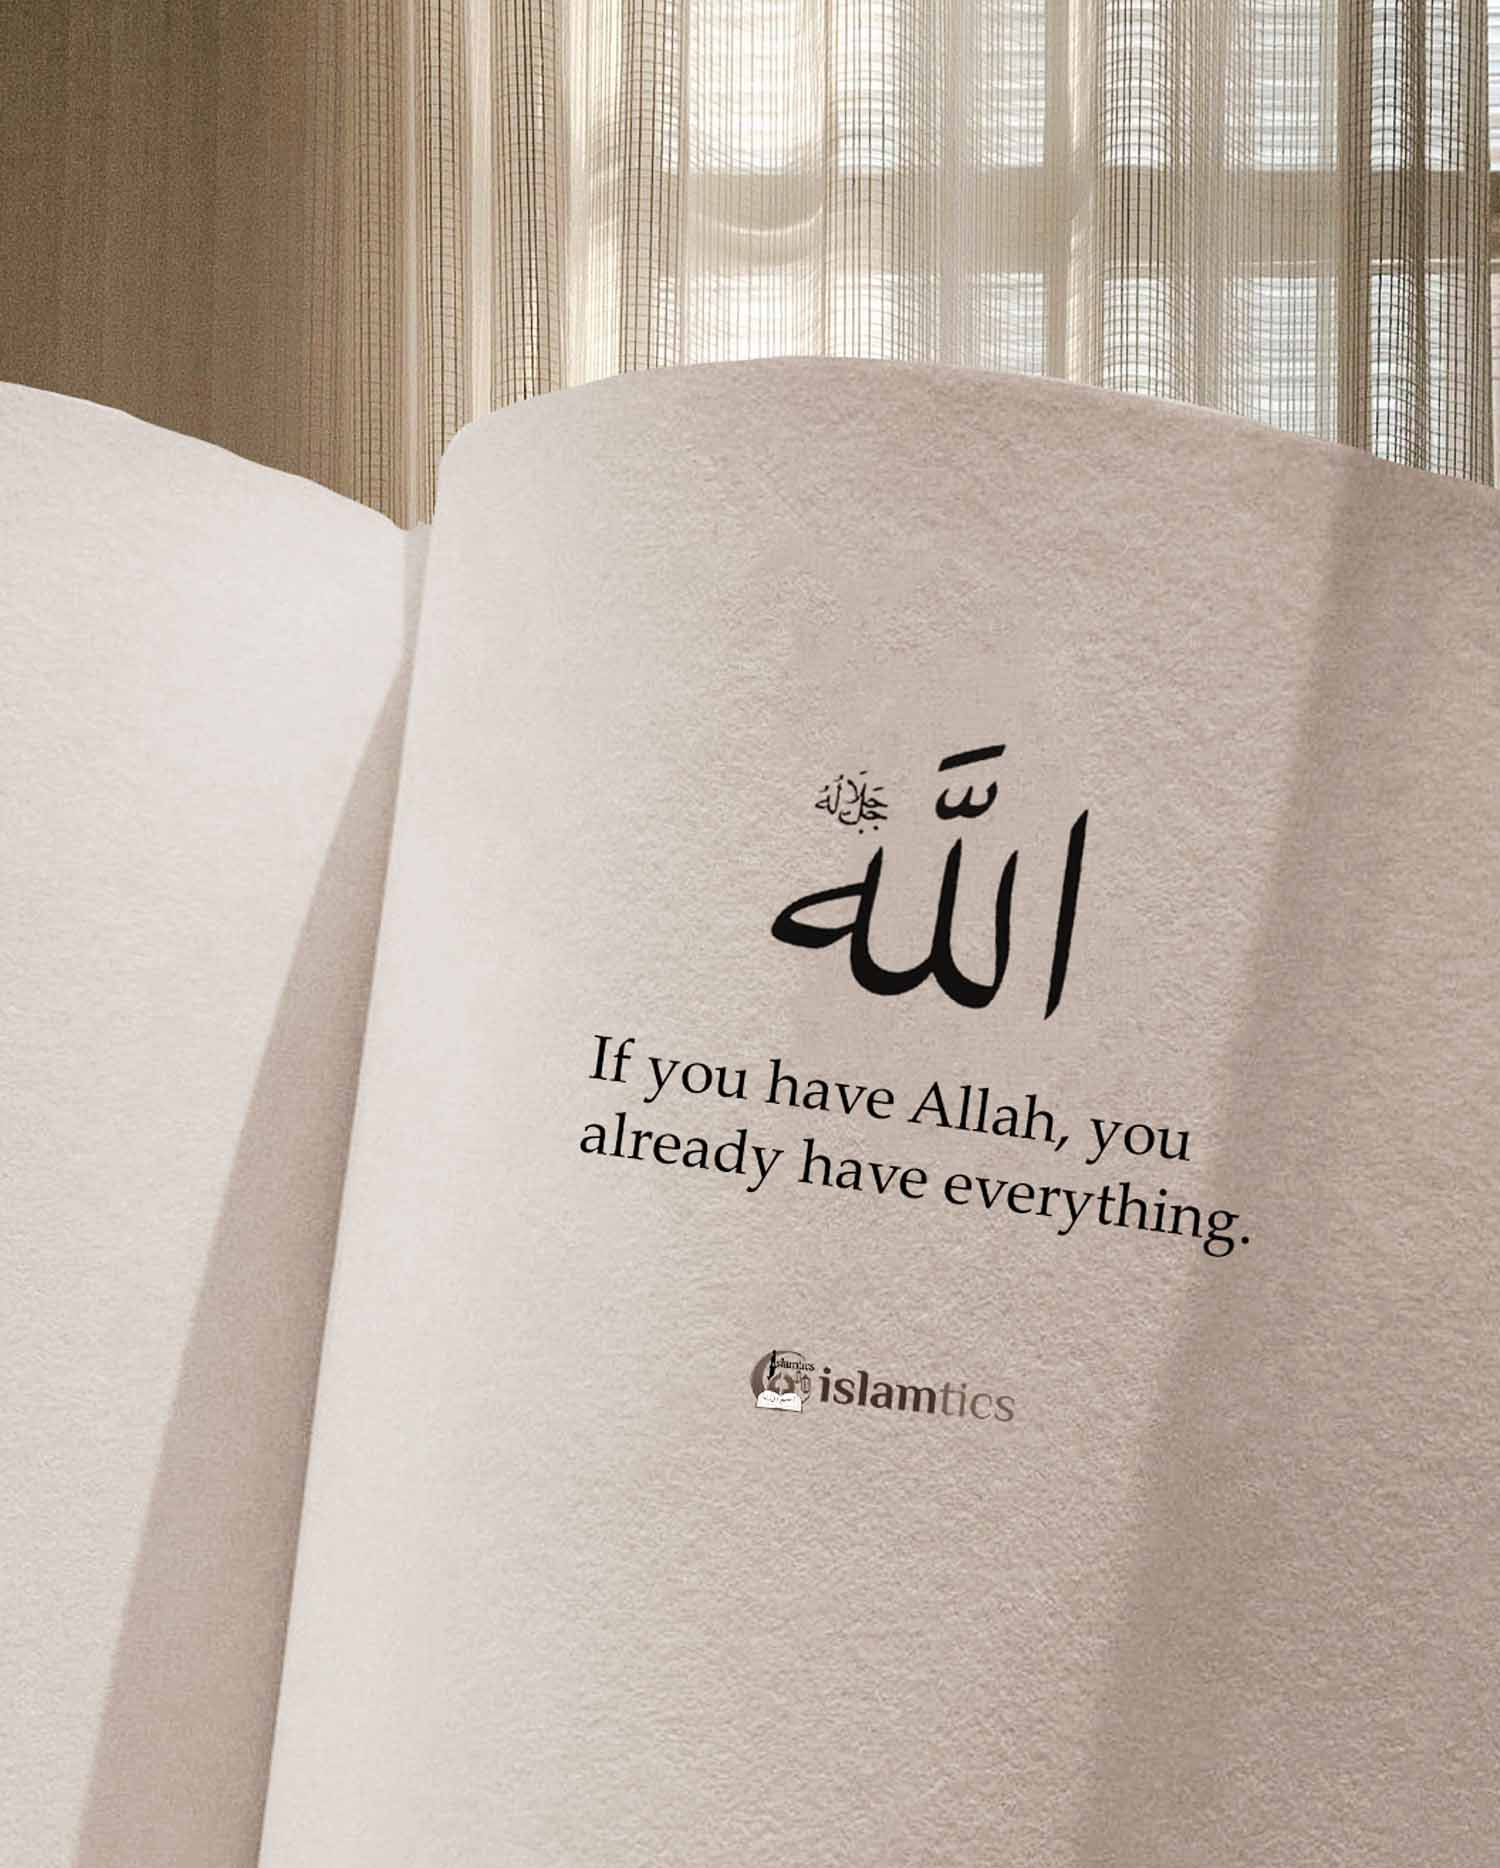 الله
جل جلاله
If you have Allah, you
already have everything.
islamtics